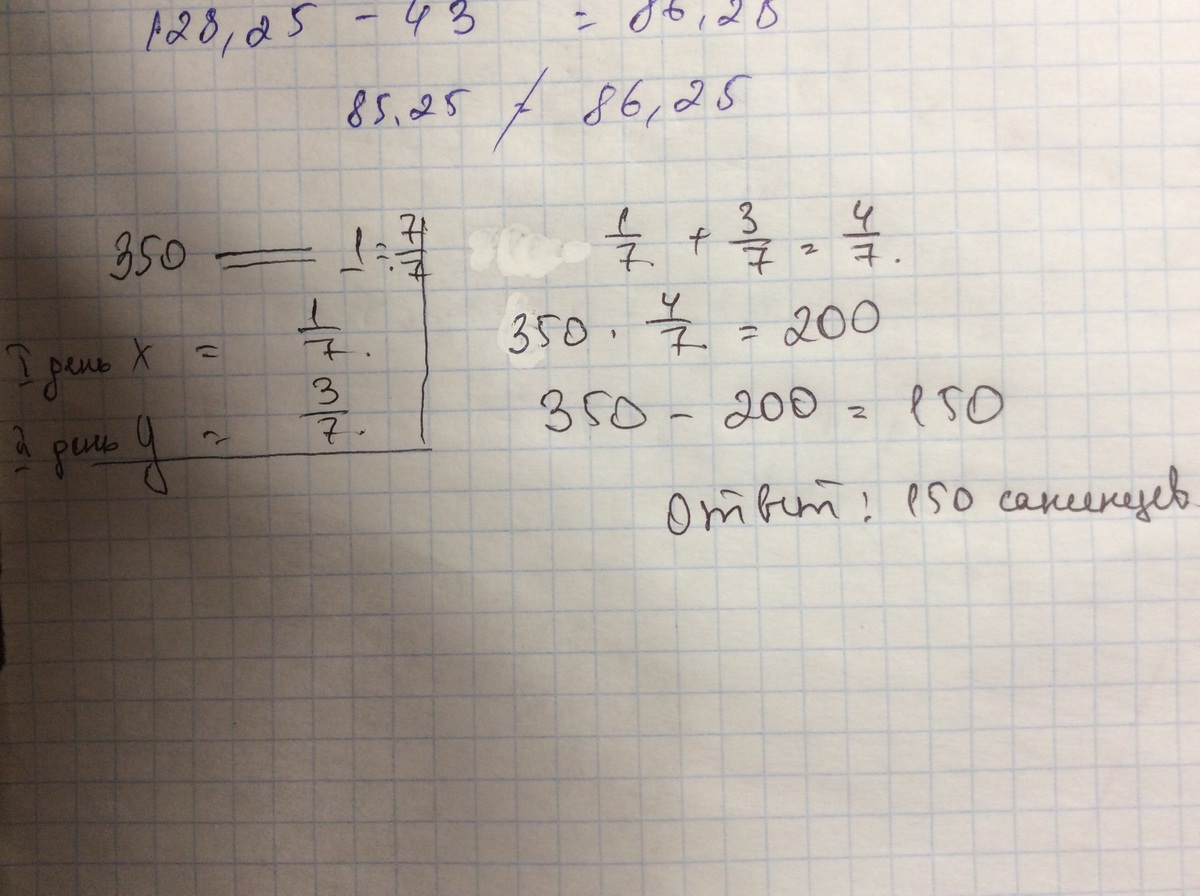 128,25 - 43 = 86,25
85.25 ≠ 86,25
350 = 1 = 7/7
I день x = 1/7.
2 день y = 3/7.
1/7 + 3/7 = 4/7.
350 · 4/7 = 200
350 - 200 = 150
Ответ: 150 саженцев